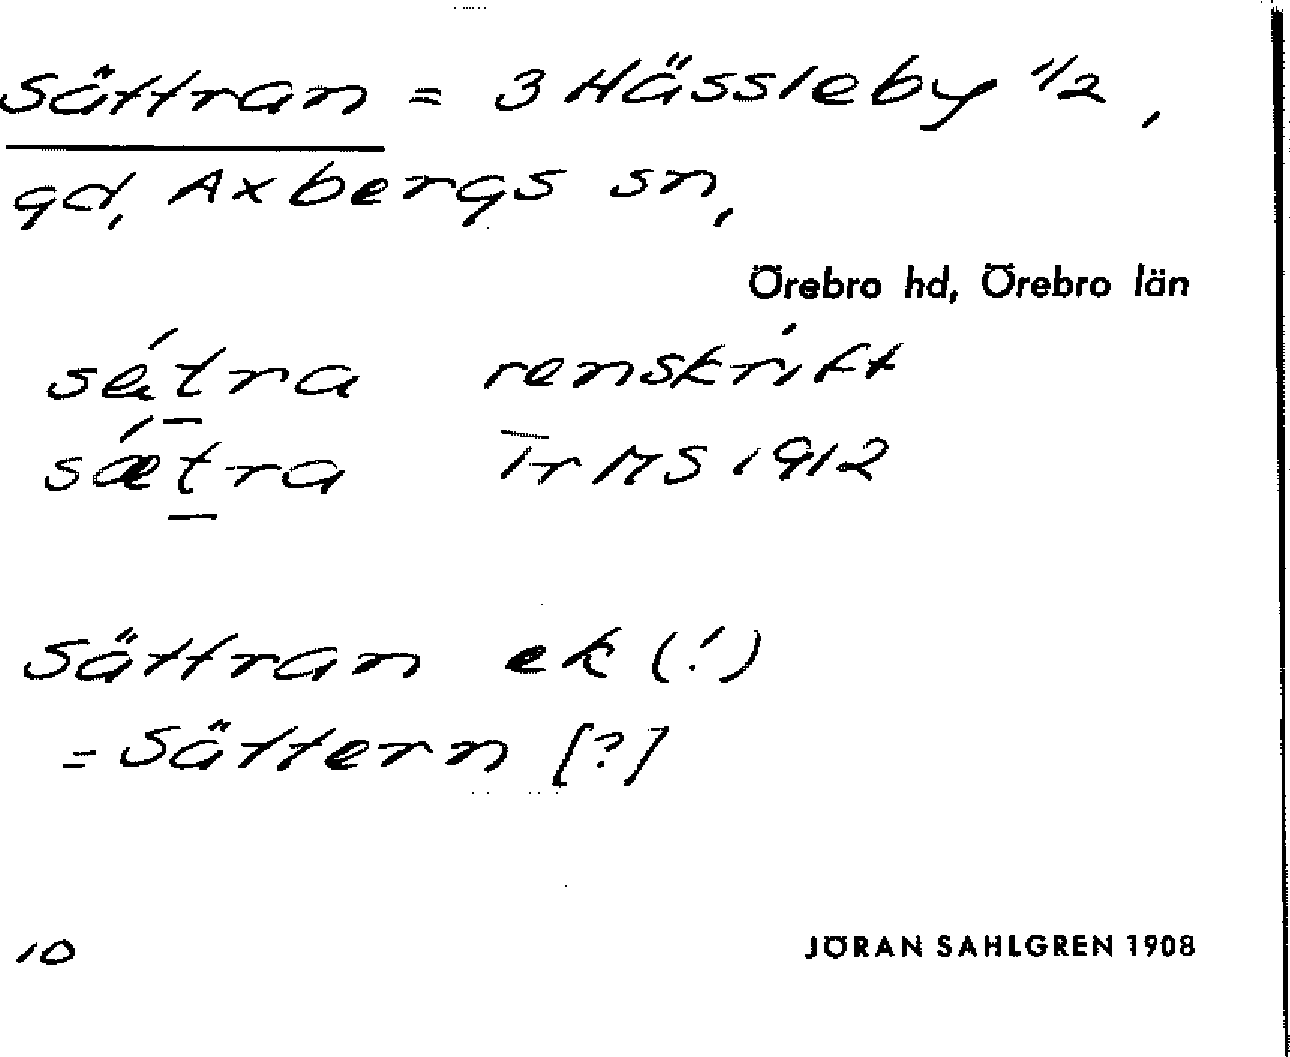 Sättran = 3 Hässleby 1/2,
gd, Axbergs sn,
Örebro hd, Örebro län
sátra renskrift
sǽtra Tr MS 1912
Sättran ek (!)
= Sättern [?]
10
JÖRAN SAHLGREN 1908